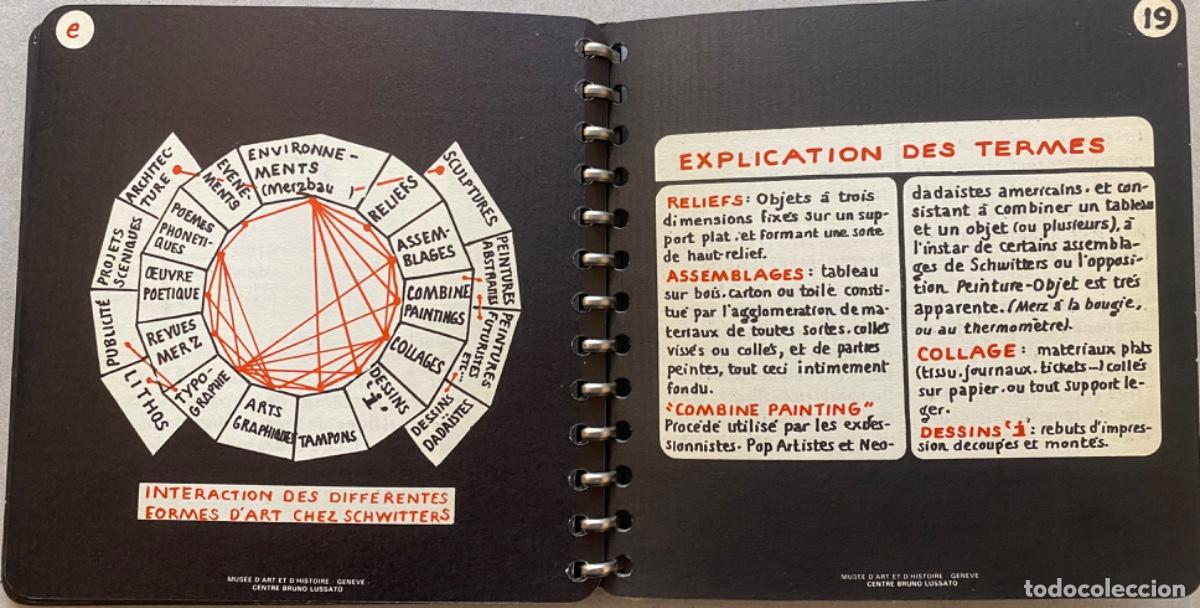 e
ARCHITEC-
TURE
ÉVÉNE-
MENTS
ENVIRONNE-
MENTS
(Merzbau)
RELIEFS
SCULPTURES
ASSEM-
BLAGES
PEINTURES
ABSTRAITES
COMBINE
PAINTINGS
PEINTURES
FUTURISTES
ETC...
COLLAGES
DESSINS
DADAÏSTES
DESSINS
"i"
TAMPONS
ARTS
GRAPHIQUES
TYPO-
GRAPHIE
LITHOS
REVUES
MERZ
PUBLICITÉ
ŒUVRE
POETIQUE
PROJETS
SCENIQUES
POEMES
PHONETI-
QUES
INTERACTION DES DIFFÉRENTES
FORMES D'ART CHEZ SCHWITTERS
MUSEE D'ART ET D'HISTOIRE - GENEVE -
CENTRE BRUNO LUSSATO
19
EXPLICATION DES TERMES
RELIEFS: Objets à trois
dimensions fixés sur un sup-
port plat. et formant une sorte
de haut-relief.
ASSEMBLAGES: tableau
sur bois. carton ou toile consti-
tué par l'agglomeration de ma-
teriaux de toutes sortes. collés
vissés ou collés, et de parties
peintes, tout ceci intimement
fondu.
"COMBINE PAINTING"
Procédé utilisé par les expres-
sionnistes. Pop Artistes et Neo-
dadaistes americains. et con-
sistant à combiner un tableau
et un objet (ou plusieurs), à
l'instar de certains assembla-
ges de Schwitters ou l'opposi-
tion Peinture-Objet est très
apparente. (Merz à la bougie,
ou au thermomètre).
COLLAGE: materiaux plats
(tissu. journaux. tickets...) collés
sur papier. ou tout support le-
ger.
DESSINS 'i': rebuts d'impres-
sion decoupés et montés.
MUSEE D'ART ET D'HISTOIRE - GENEVE
CENTRE BRUNO LUSSATO
todocoleccion